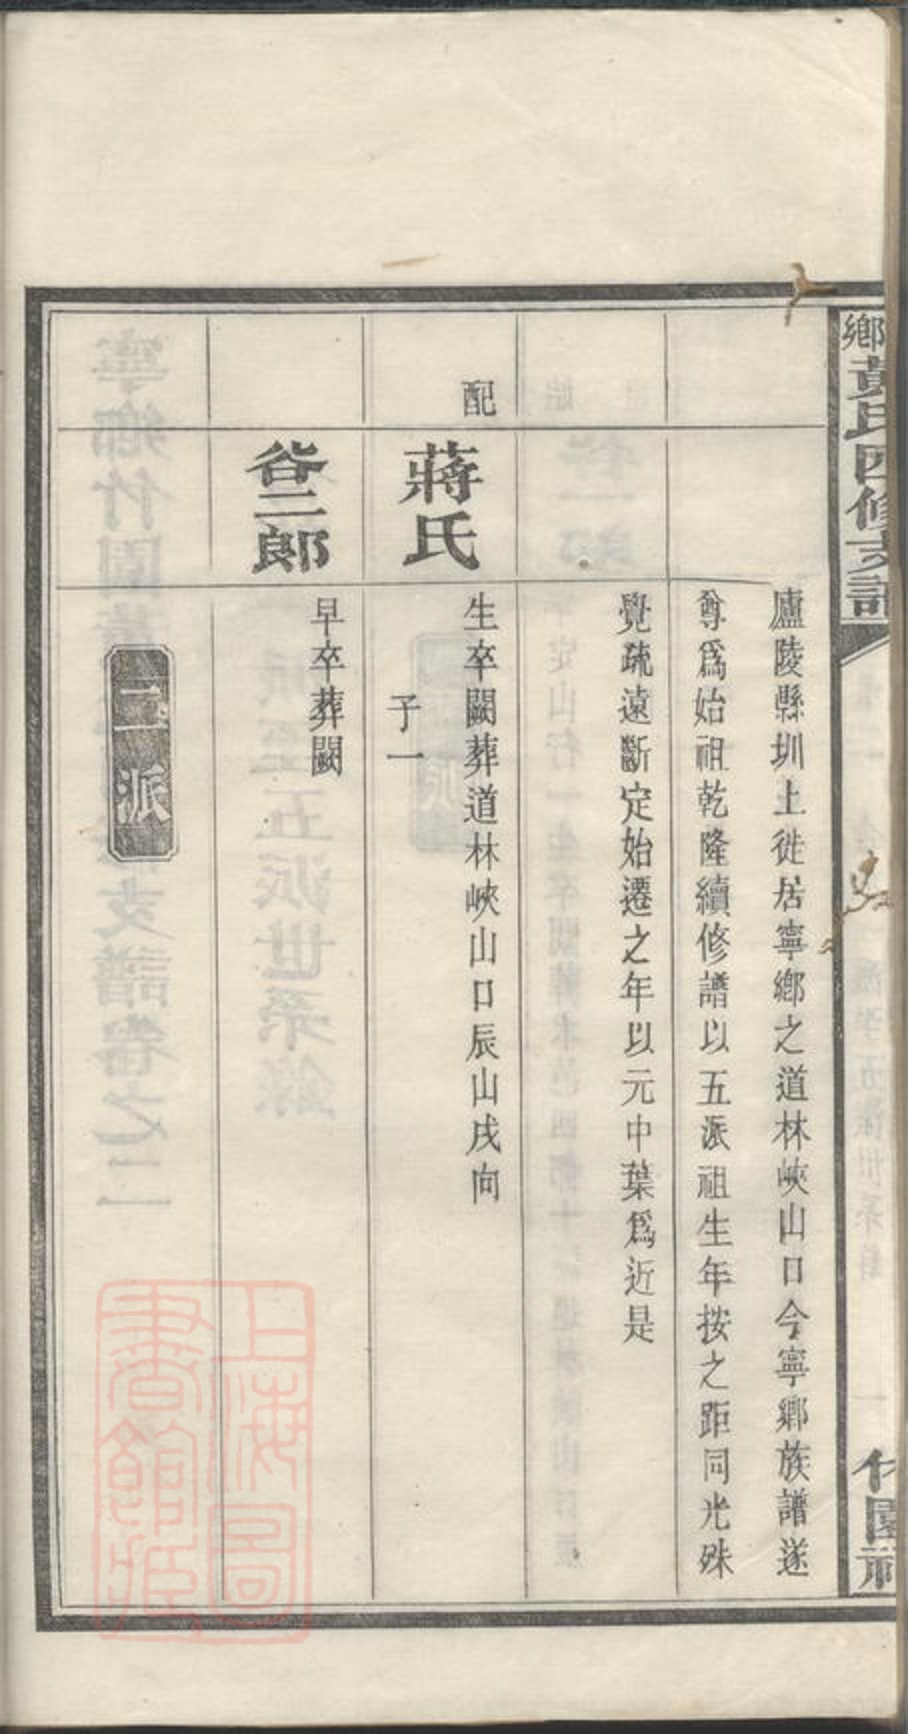 鄉黃氏四修支譜
竹園祠
廬陵縣圳上徙居寧鄉之道林峽山口今寧鄉族譜遂
尊爲始祖乾隆續修譜以五派祖生年按之距同光殊
覺疏遠斷定始遷之年以元中葉爲近是
配
蔣氏
生卒闕葬道林峽山口辰山戌向
子一
谷二郎
早卒葬闕
二派
上海圖
書館藏